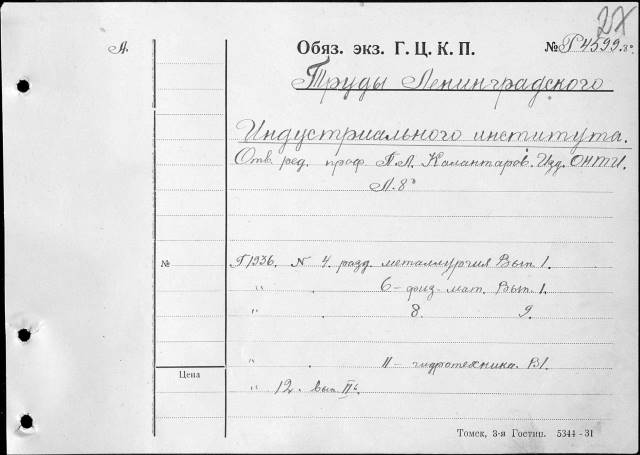 2X
А. Обяз. экз. Г. Ц. К. П. № Г 4599.8°
Труды Ленинградского
Индустриального института.
Отв. ред. проф. П. Л. Калантаров. Изд. ОНТИ.
Л. 8°
№ Г 1936. N 4. разд. металлургия Вып 1.
" . 6 – физ – мат. Вып. 1.
" . 8. 9.
" . 11 – гидротехника. В1.
Цена
" 12. вып. II
Томск, 3-я Гостип. 5344 - 31